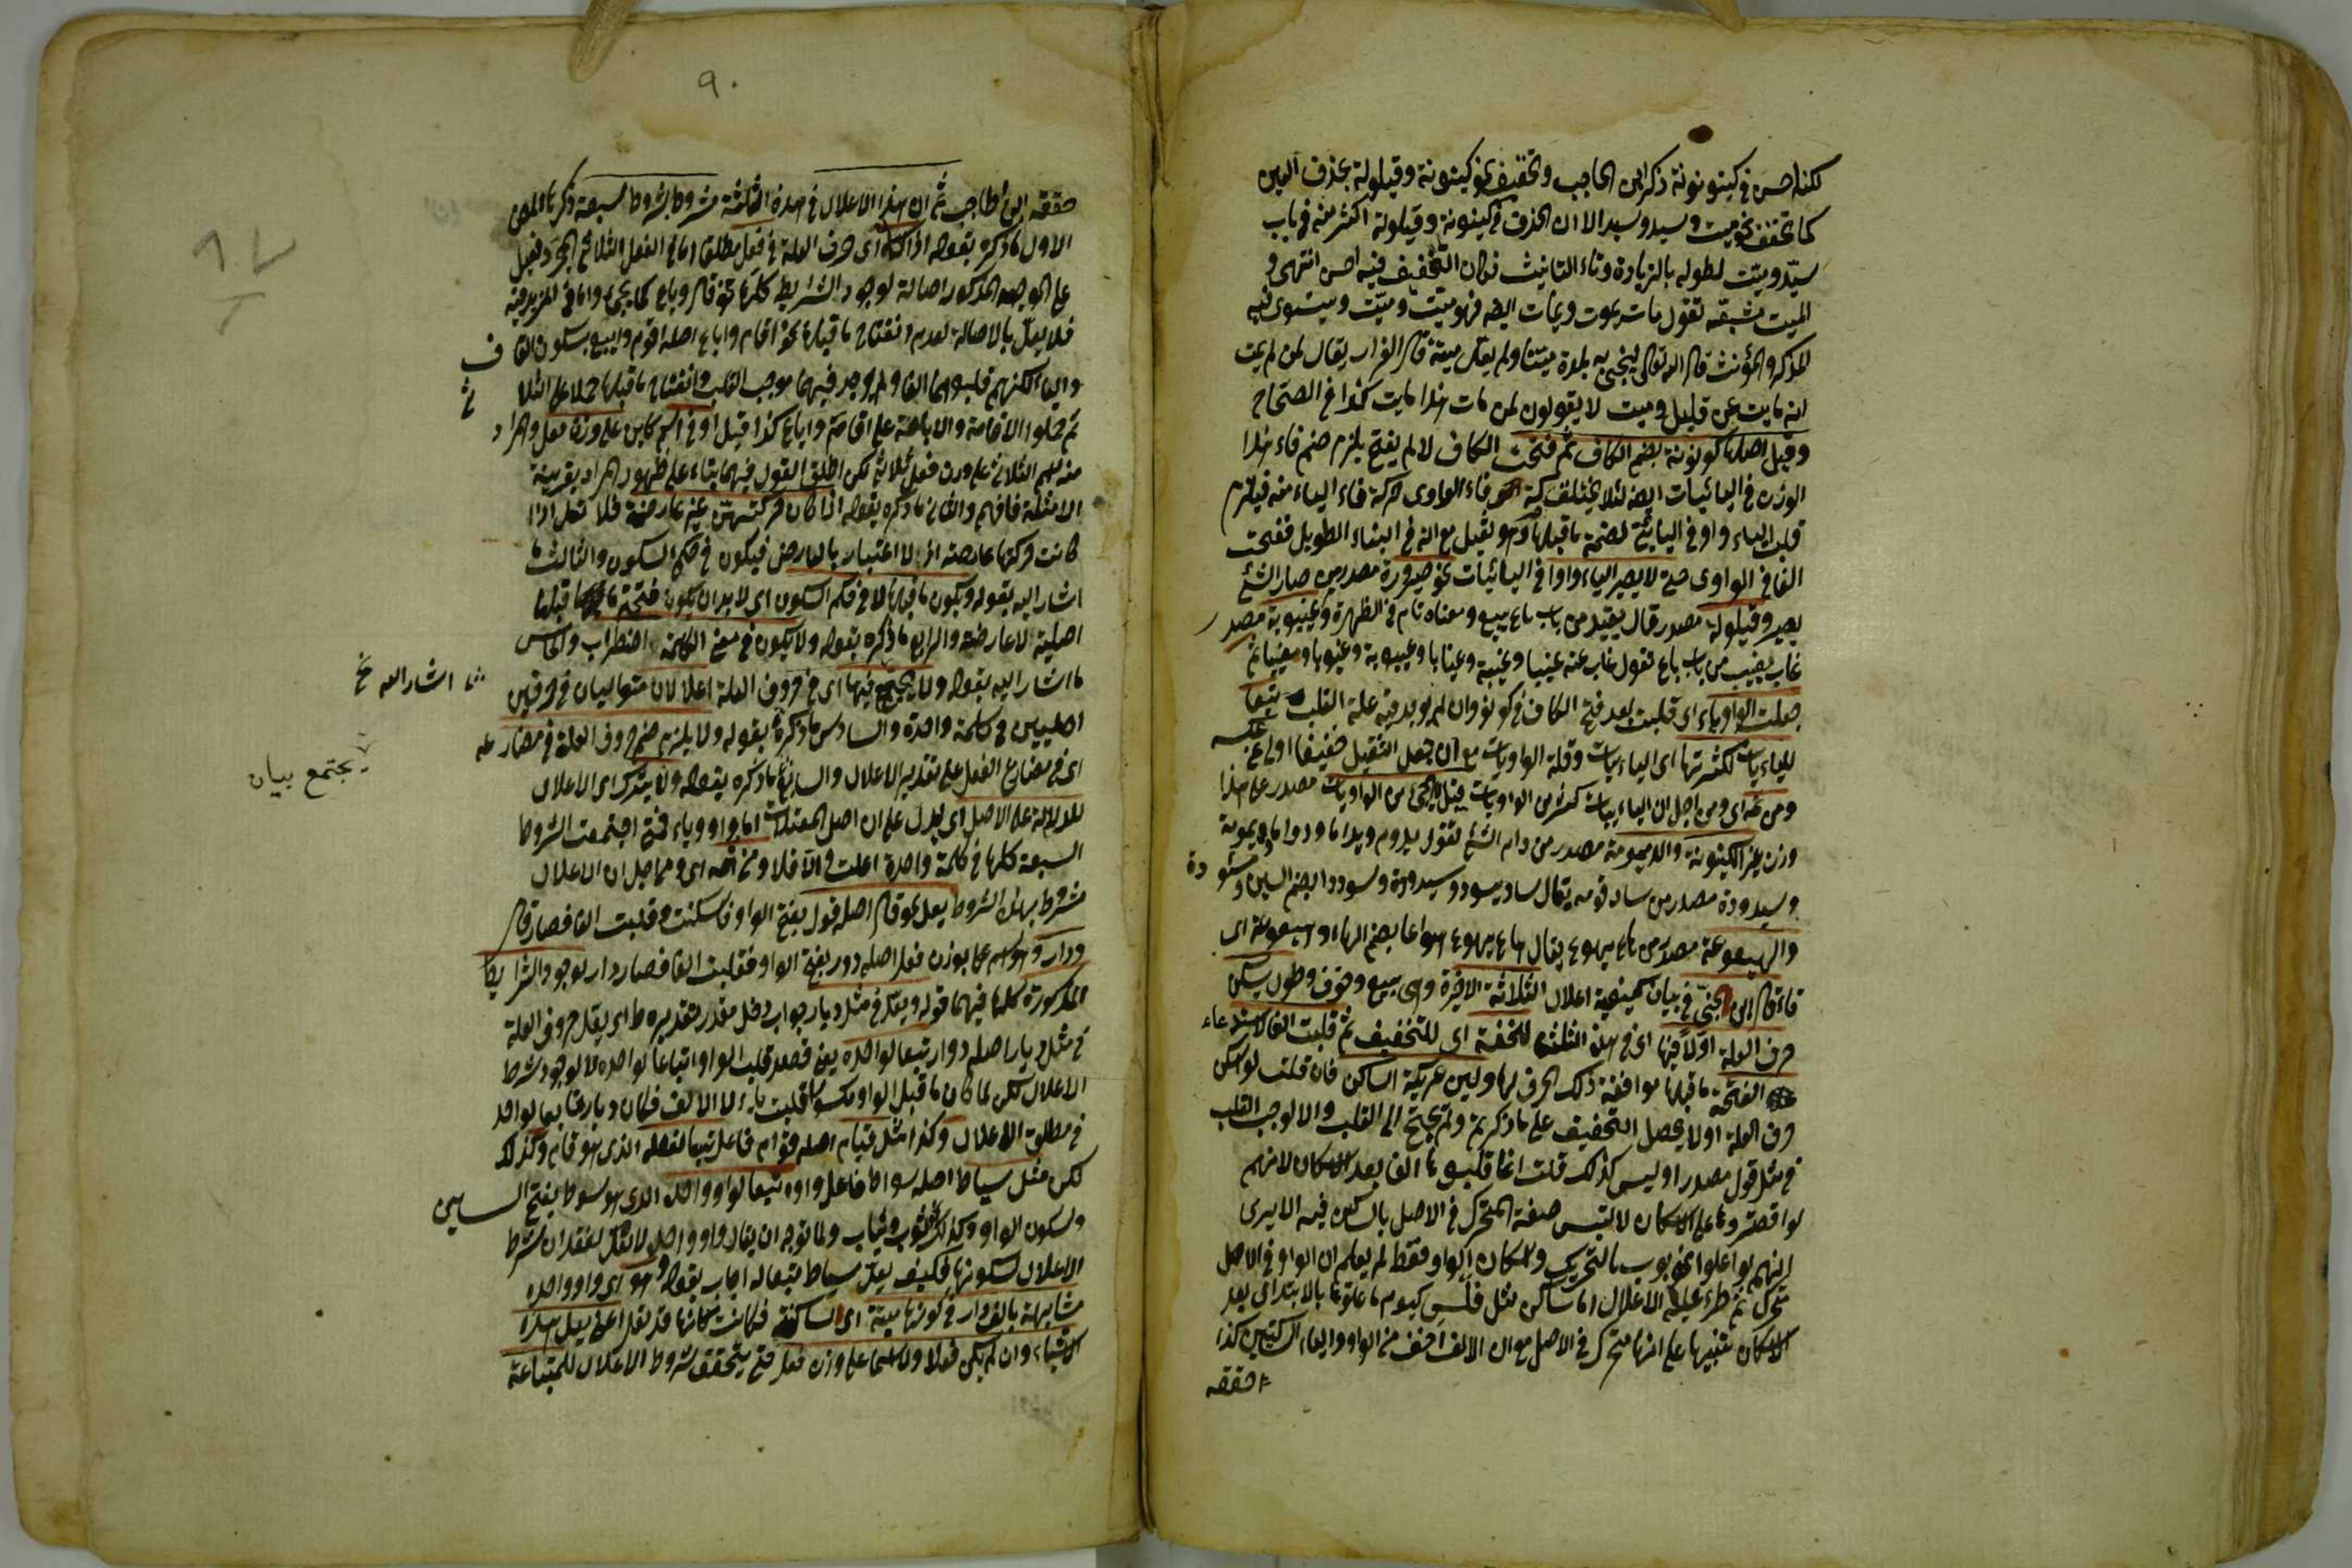 لكنه احسن في كينونة ذكر ابن الحاجب وتخفيف نحو كينونة وقيلولة بحذف العين
كما تخفف نحو ميت وسيد وسيد الا ان الحذف في كينونة وقيلولة اكثر منه في باب
سيد وميت لطوله بالزيادة وتاء التانيث فكان التخفيف فيه احسن انتهى و
الميت مشتقه تقول مات يموت ويمات ايضا فهو ميت وميت ويستوى فيه
المذكر والمؤنث قال الله تعالى لنحيى به بلدة ميتا ولم يقل ميتة قال الفراء يقال لمن لم يمت
انه مايت عن قليل وميت لا يقولون لمن مات هذا مايت كذا في الصحاح
وقيل اصلها كونونة بضم الكاف ثم فتحت الكاف لا لم يفتح يلزم ضم فاء هذا
الوزن في اليائيات ايضا لئلا يختلف حركة فاء الواوى حركة فاء الياء منه فيلزم
قلب الياء واو في اليائي لضمة ما قبلها وهو ثقيل مع انه في البناء الطويل ففتحت
الفاء في الواوى حتى لا يصير الياء واوا في اليائيات نحو صيرورة مصدر من صار الشئ
يصير وقيلولة مصدر قال يقيل من باب باع يبيع ومعناه نام في الظهيرة وغيبوبة مصدر
غاب يغيب من باب باع تقول غاب عنه غيبا وغيبة وغيابا وغيبوبة وغيوبا ومغيبا ثم
جعلت الواو ياء اى قلبت بعد فتح الكاف في كونونة وان لم يوجد فيه علة القلب تبعا
لليائيات لكثرتها اى اليائيات وقلة الواويات مع ان جعل الثقيل خفيفا اولى من عكسه
ومن ثمه اى ومن اجل ان اليائيات كثر من الواويات قيل لا يجئ من الواويات مصدر على هذا
وزن غير الكينونة والديمومة مصدر من دام الشئ تقول يدوم ويدام دوما ودواما وديمومة
وسيدودة مصدر من ساد قومه يقال ساد يسود وسيدودة وسوددا بضم السين و سودة
والهيعوعة مصدر من هاع يهوع يقال هاع يهوع هواعا بضم الهاء وهيعوعة اى
قاء قال ابن جنى في بيان كيفية اعلال الثلاثة الاخيرة وهى بيع وخوف وطول يسكن
حرف العلة اولا فيها اى في هذه الثلثة للخفة اى للتخفيف ثم قلبت الفا لاستدعاء
الفتحة ما قبلها موافقة ذلك الحرف لها ولين عريكة الساكن فان قلت لو اسكن
حرف العلة اولا يحصل التخفيف على ما ذكرتم ولم يحتج الى القلب والا لوجب القلب
في مثل قول مصدرا وليس كذلك قلت انما قلبوها الفا بعد الاسكان لانهم
لو اقتصروا على الاسكان لالتبس صفة المتحرك في الاصل بالساكن فيه الا يرى
انهم لو اعلوا نحو بوب بالتحريك والاسكان الواو فقط لم يعلم ان الواو في الاصل
متحرك ثم طرء عليه الاعلال ام ساكن مثل قلس كيوم فاعلوها بالابتداى بعد
الاسكان تنبيها على انها متحرك في الاصل مع ان الالف اخف من الواو والياء الساكنين كذا
حققه
٩٠
حققه ابن الحاجب ثم ان هذا الاعلال في هذه الثلثة مشروط بشروط سبعة ذكرها المص
الاول ما ذكره بقوله اذا كان اى حرف العلة في فعل مطلقا اما في الفعل الثلاثى المجرد فيعل
على الوجه المذكور اصالة لوجود الشرايط كلها نحو قال وباع كما يجئ واما في المزيد فيه
فلا يعل بالاصالة لعدم انفتاح ما قبلها نحو اقام واباع اصله اقوم وابيع بسكون القاف
والباء لكنهم قلبوهما الفا ولم يوجد فيهما موجب القلب وانفتاح ما قبلها حملا على الثلا ثى
ثم حملوا الاقامة والاباعة على اقامة واباع كذا قيل او في اسم كاين على وزن فعل والمراد
منه اسم الثلاثى على وزن فعل ثلاثى لكن اطلق القول فيهما بناء على ظهور المراد بقرينة
الامثلة فافهم والثانى ما ذكره بقوله اذا كان حركتهن غير عارضة فلا تعل اذا
كانت حركتها عارضة اذ لا اعتبار بالعارض فيكون في حكم السكون والثالث ما
اشار اليه بقوله ويكون ما قبلها لا في حكم السكون اى لا بد ان يكون فتحة ما قبلها
اصلية لا عارضة والرابع ما ذكره بقوله ولا يكون في معنى الكلمة اضطراب والخامس
ما اشار اليه بقوله ولا يجتمع فيها اى في حروف العلة اعلالان متواليان في حرفين
اصليين في كلمة واحدة والسادس ما ذكره بقوله ولا يلزم ضم حروف العلة في مضارعه
اى في مضارع الفعل على تقدير الاعلال والسابع ما ذكره بقوله ولا يترك اى الاعلال
للدلالة على الاصل اى ليدل على ان اصل المعتلات اما واو وياء فمتى اجتمعت الشروط
السبعة كلها في كلمة واحدة اعلت والا فلا ومن ثمه اى ومن اجل ان الاعلال
مشروط بهذه الشروط يعل نحو قال اصله قول بفتح الواو فاسكنت وقلبت الفا فصار قال
ودار وهو اسم على وزن فعل اصله دور بفتح الواو فقلبت الفا فصار دار لوجود الشرايط
المذكورة كلها فيهما قوله ويعل في مثل ديار جواب دخل مقدر تقديره ط اى يعل حروف العلة
في مثل ديار اصله دوار تبعا لواحده يعنى قصد قلب الواو اتباعا لواحده لا لوجود شرط
الاعلال لكن لما كان ما قبل الواو مكسورا قلبت ياء لا الالف فكان ديار تابعا لواحد
في مطلق الاعلال وكذا مثل قيام اصله قوام فاعل تبعا لفعله الذى هو قام وكذلك
لكن مثل سياط اصله سواط فاعل واوه تبعا لواو واحده الذى هو سوط بفتح السين
وسكون الواو وكذلك ثوب وثياب ولما توجه ان يقال واو واحد لا تعل لفقدان شرط
الاعلال لسكونها فكيف يعل سياط تبعا له اجاب بقوله وهو اى واو واحده
مشابهة بالف دار في كونها ميتة اى الساكنة فكانت كانها قد تعل اعنى يعل هذا
الاشياء وان لم يكن فعلا ولا اسما على وزن فعل حتى يتحقق شروط الاعلال للمتابعة
اشار اليه خ
يجتمع بيان